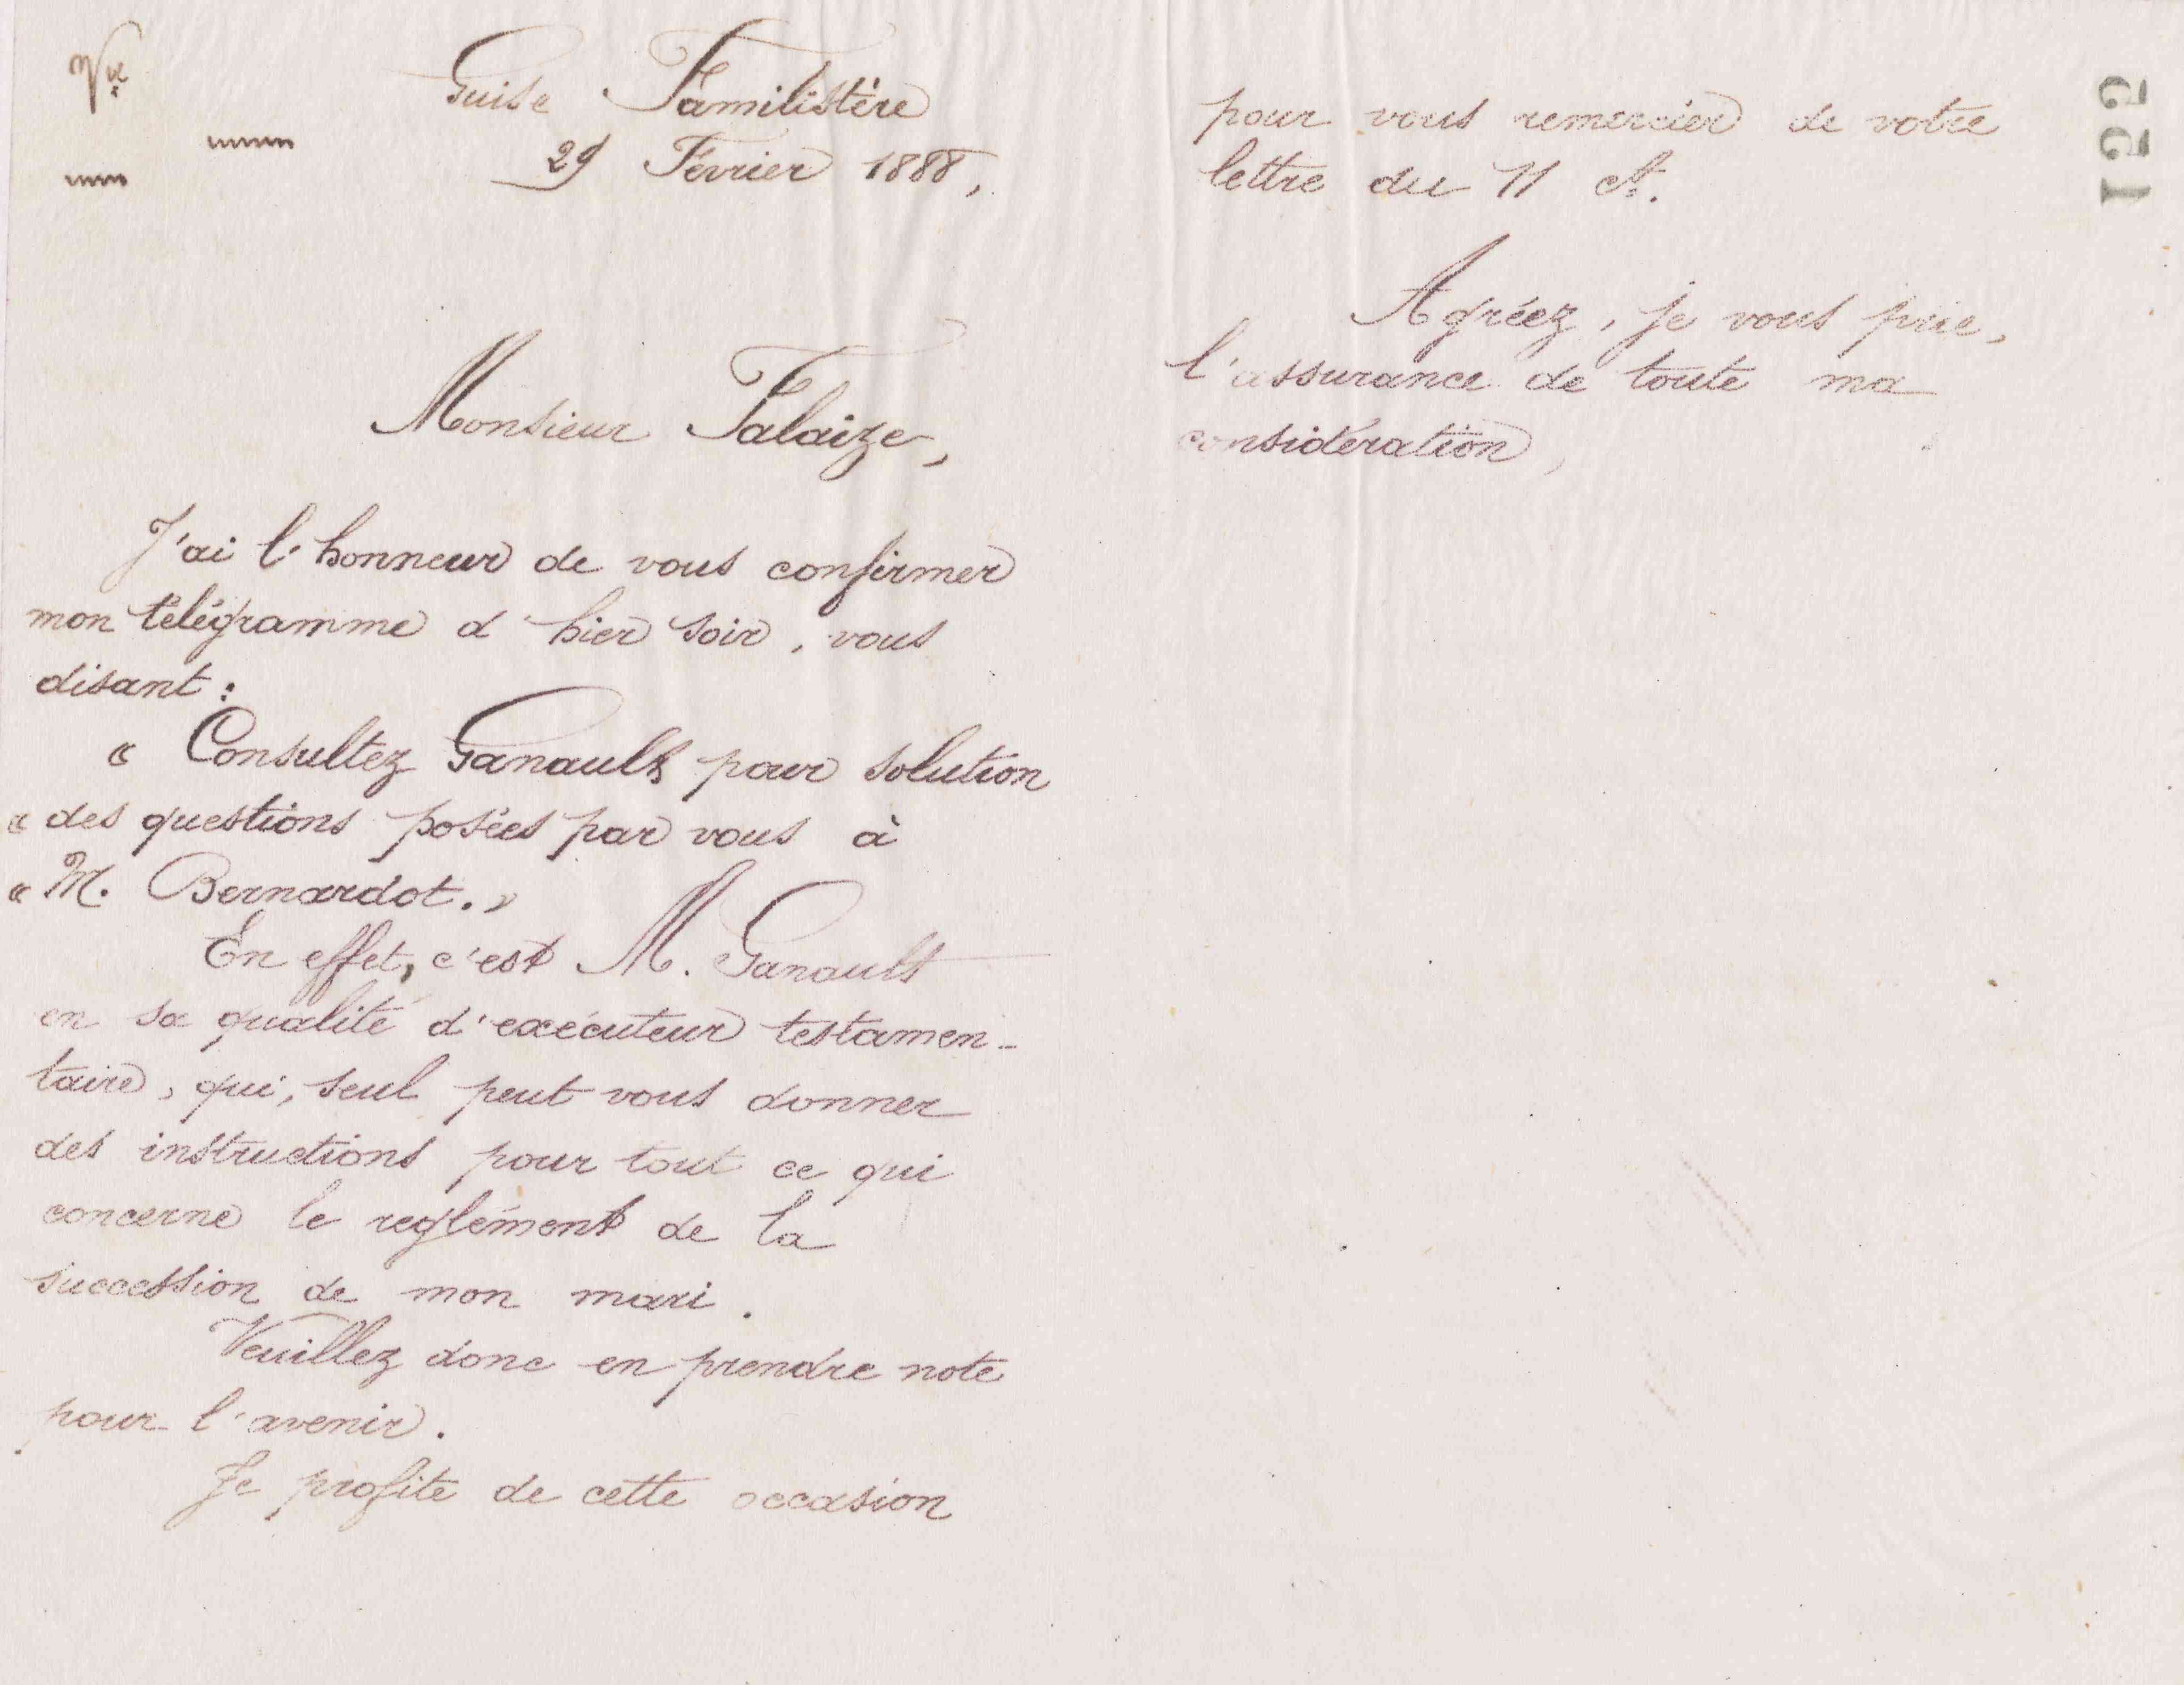 Vve
Guise Familistère
29 Février 1888,
Monsieur Falaize,
J'ai l'honneur de vous confirmer
mon télégramme d'hier soir, vous
disant :
« Consultez Ganault pour solution
« des questions posées par vous à
« M. Bernardot. »
En effet, c'est M. Ganault
en sa qualité d'exécuteur testamen-
taire, qui, seul peut vous donner
des instructions pour tout ce qui
concerne le reglément de la
succession de mon mari.
Veuillez donc en prendre note
pour l'avenir.
Je profite de cette occasion
pour vous remercier de votre
lettre du 11 ct.
Agréez, je vous prie,
l'assurance de toute ma
considération,
155